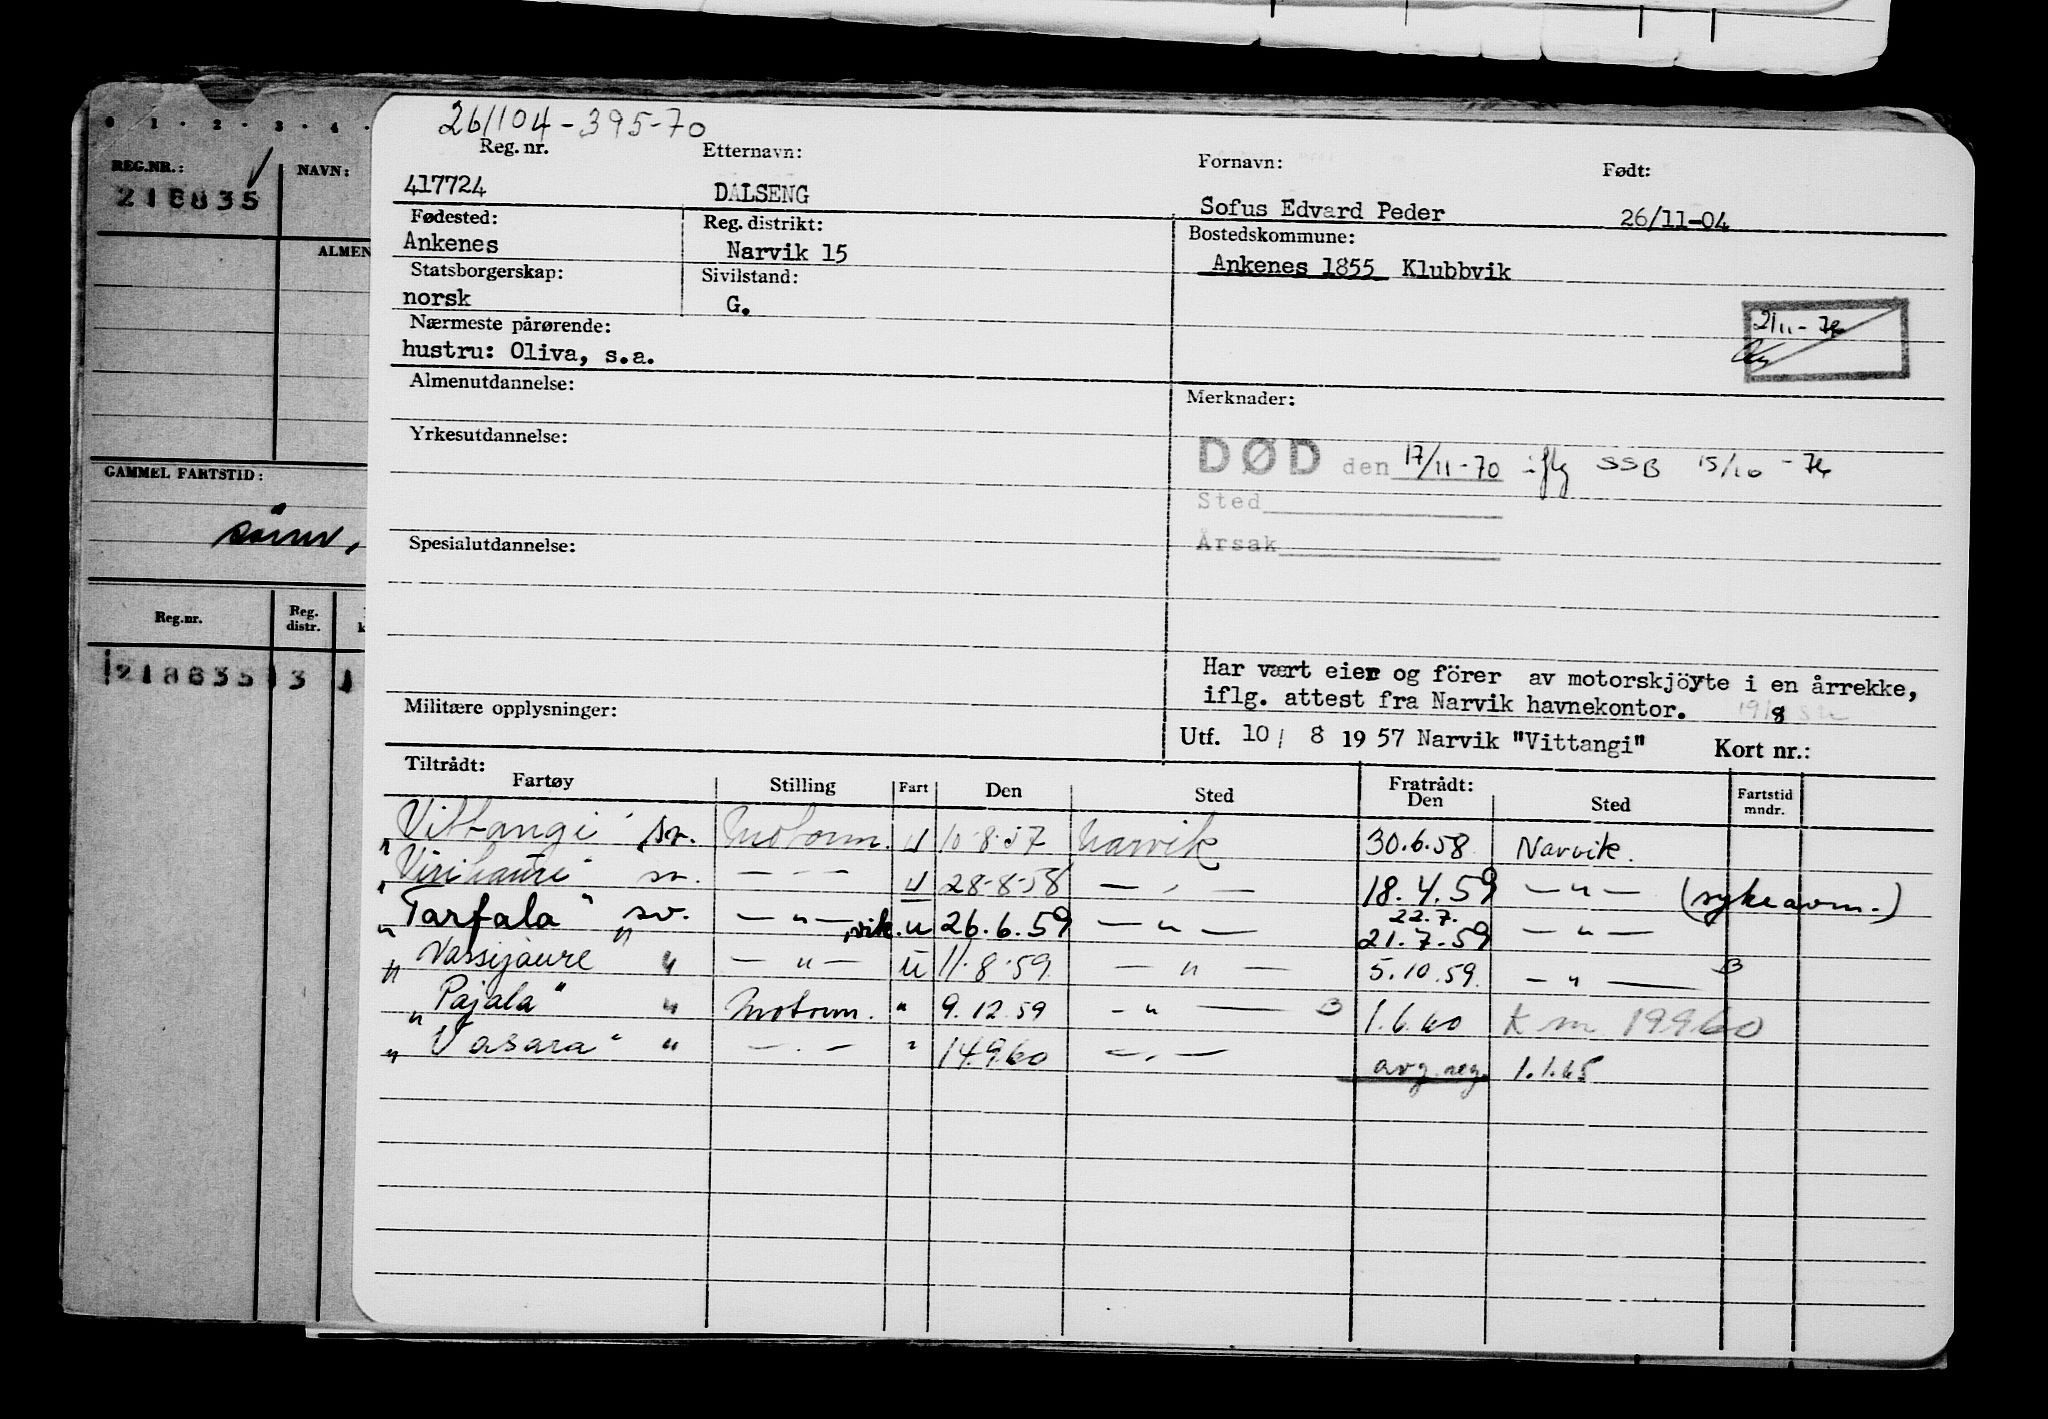 26/1104-395-70
Reg. nr. Etternavn: Fornavn: Født:
417724 DALSENG Sofus Edvard Peder 26/11-04
Fødested: Reg. distrikt: Bostedskommune:
Ankenes Narvik 15 Ankenes 1855 Klubbvik
Statsborgerskap: Sivilstand:
norsk G.
Nærmeste pårørende:
hustru: Oliva, s.a.
Almenutdannelse: Merknader:
Yrkesutdannelse:
DØD den 17/11-70 iflg SSB 15/10-74
Sted
Årsak
Spesialutdannelse:
Har vært eier og förer av motorskjöyte i en årrekke,
iflg. attest fra Narvik havnekontor.
Militære opplysninger:
Utf. 10/ 8 1957 Narvik "Vittangi" Kort nr.:
Tiltrådt: Fratrådt:
Fartøy Stilling Fart Den Sted Den Sted Fartstid mndr.
"Vittangi" sv. Motorm. U 10.8.57 Narvik 30.6.58 Narvik.
"Virihaure" sv. — " — U 28-8-58 — " — 18.4.59 — " — (sykeavm.)
"Tarfala" sv. — " —, vik. u 26.6.59 — " — 22.7. 21.7.59 — " —
"Vassijaure" " — " — u 11.8.59 — " — 5.10.59. — " — B
"Pajala" " Motorm. " 9.12.59 — " — B 1.6.60 K m 19960
"Vasara" " — " — " 14.9.60 — " — avg. reg. 1.1.65
0 1 . 2 . 3 . 4 .
REG.NR.: NAVN:
218835
ALMEN
GAMMEL FARTSTID:
Reg.nr. Reg. distr.
218835 3 1